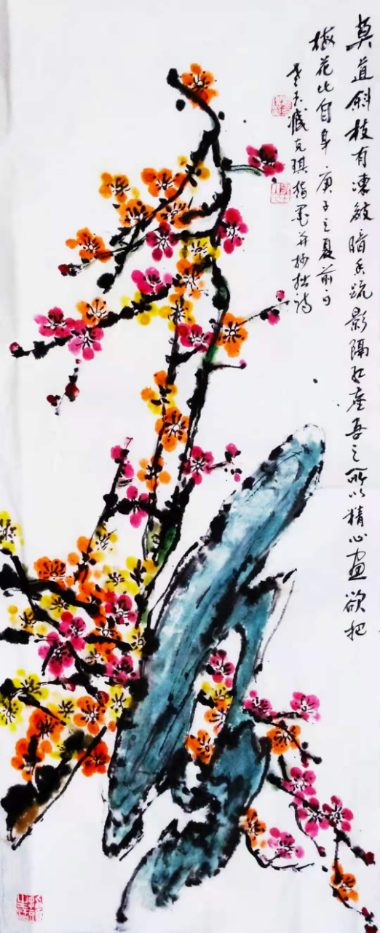 莫道斜枝有凍皴暗香疏影隔紅塵吾之所以精心畫欲把
梅花比自身 庚子立夏前日
老夫臧克琪揮毫并抄拙詩